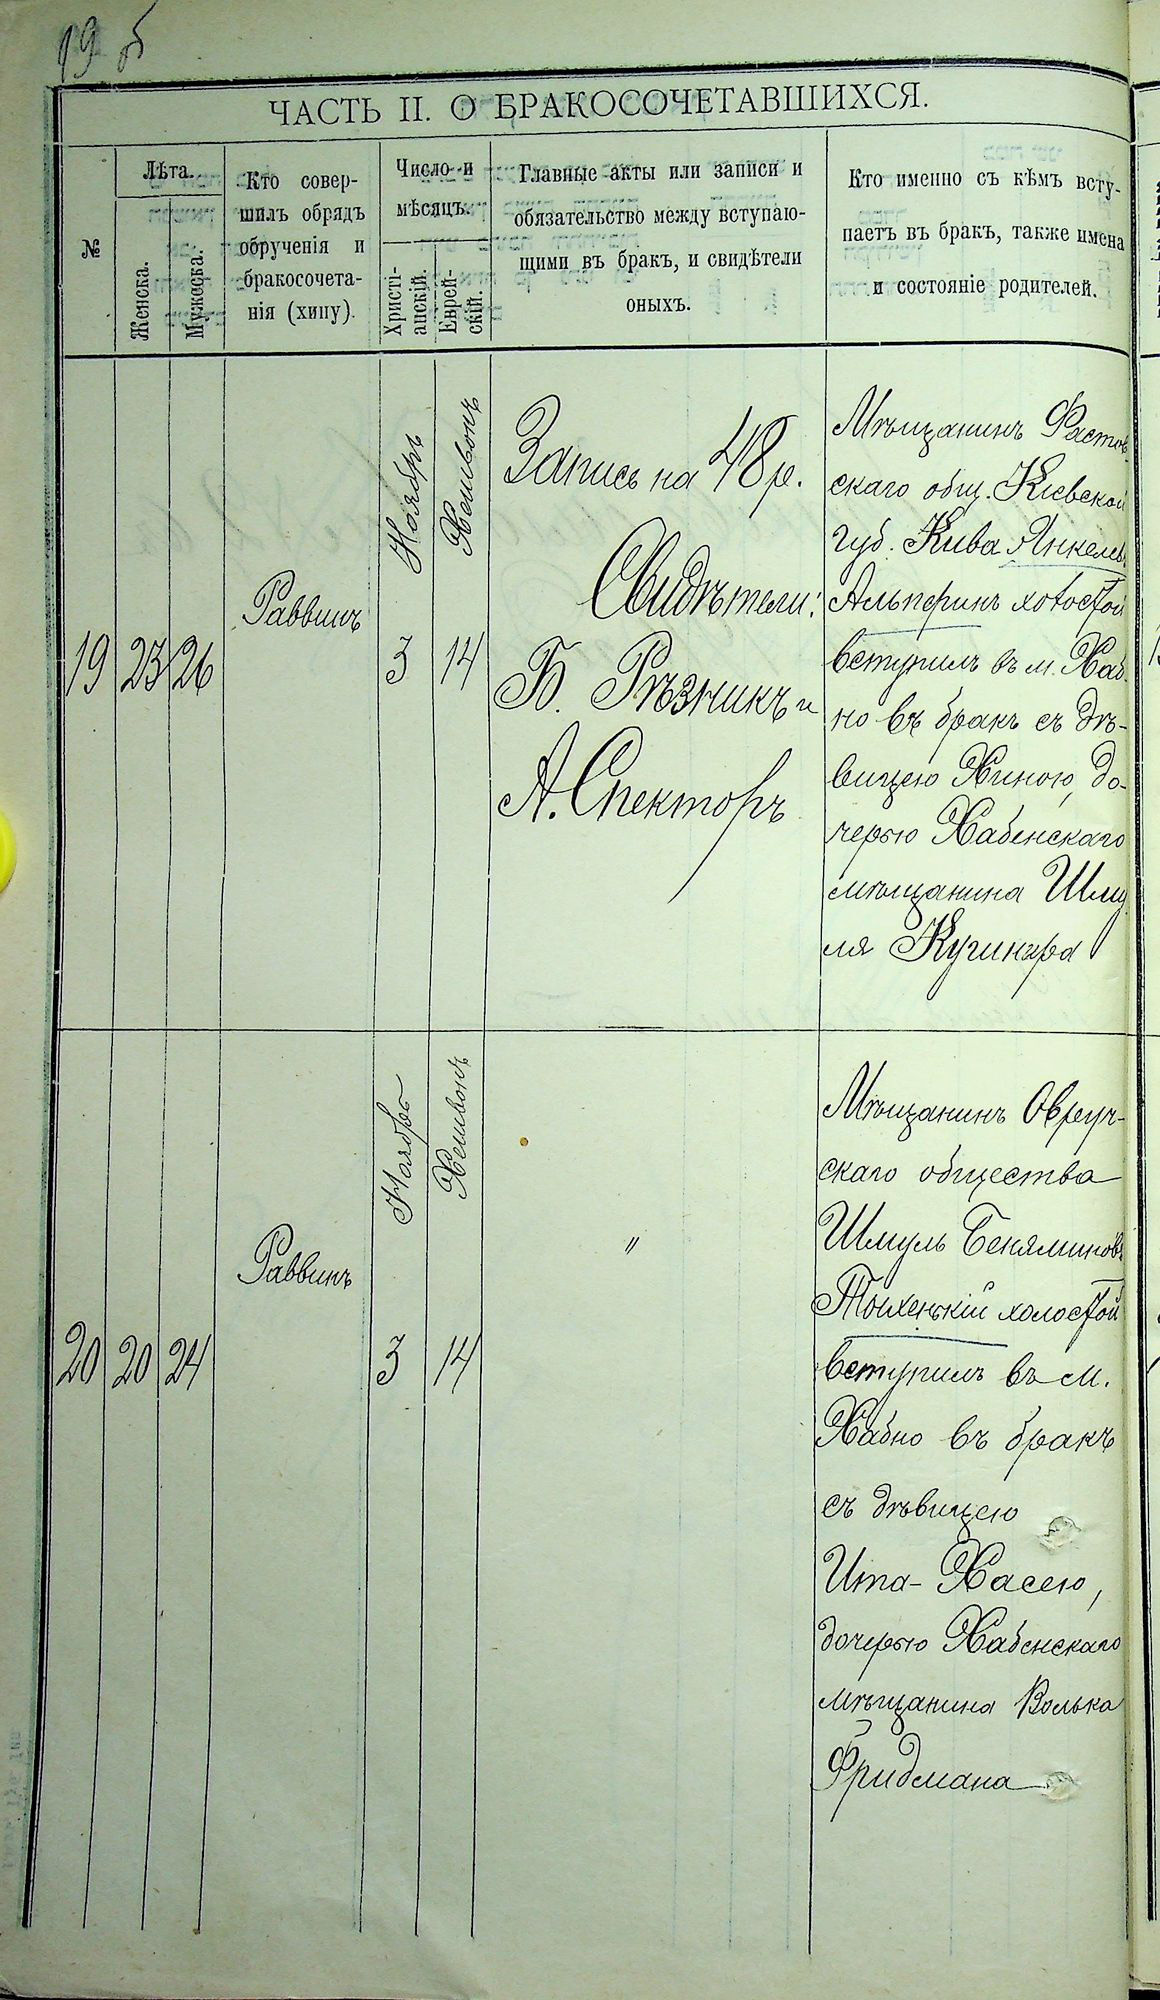 19 об
ЧАСТЬ II. О БРАКОСОЧЕТАВШИХСЯ.
№
Лѣта.
Женска.
Мужеска.
Кто совер-
шилъ обрядъ
обрученія и
бракосочета-
нія (хипу).
Число и
мѣсяцъ.
Христі-
анскій.
Еврей-
скій.
Главные акты или записи и
обязательство между вступаю-
щими въ бракъ, и свидѣтели
оныхъ.
Кто именно съ кѣмъ всту-
паетъ въ бракъ, также имена
и состояніе родителей.
19
23
26
Раввинъ
Ноябръ
3
Хешвонъ
14
Запись на 48 р.
Свидѣтели:
Б. Рѣзникъ и
А. Спекторъ
Мѣщанинъ Фастов
скаго общ. Кіевской
губ. Кива Янкелев
Альперинъ холостой
вступилъ въ м. Хаб-
но въ бракъ съ дѣ-
вицею Хиною, до-
черью Хабенскаго
мѣщанина Шму
ля
20
20
24
Раввинъ
Ноябрь
3
Хешвонъ
14
"
Мѣщанинъ Овруч-
скаго общества
Шмуль Беняминовъ
холостой
вступилъ въ м.
Хабно въ бракъ
съ дѣвицею
Ита-Хасею,
дочерью Хабенскаго
мѣщанина Волька
Фридмана